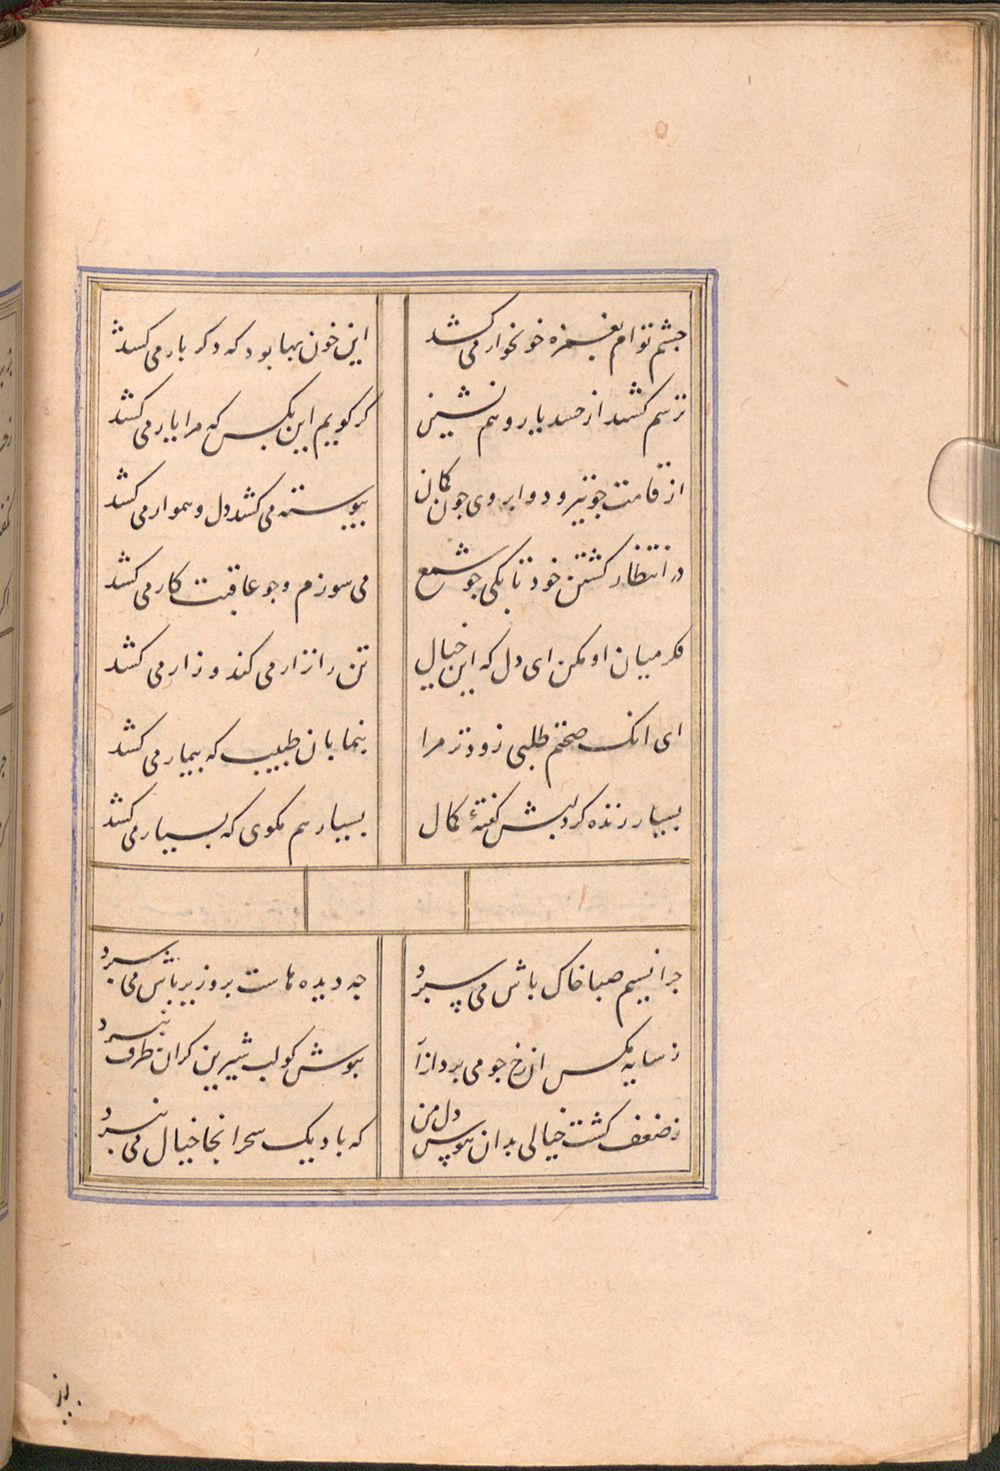 جشم توام بغمزه خونخوار می کشد
این خون بها بود که دکر بار می کشد
ترسم کشد از حسد یار و هم نشین
کر کویم این بکس که مرا یار می کشد
از قامت جو تیر و دو ابروی جون کمان
پیوسته می کشد دل و هموار می کشد
در انتظار کشتن خود تا بکی جو شمع
می سوزم و جو عاقبت کار می کشد
فکر میان او مکن ای دل که این خیال
تن را نزار می کند و زار می کشد
ای انک صحتم طلبی زودتر مرا
بنما بان طبیب که بیمار می کشد
بسیار زنده کرد لبش کفتهٔ کمال
بسیار هم مکوی که بسیار می کشد
جرا نسیم صبا خاک باش می سپرد
جه دیده هاست بروز یر باش می سپرد
ز سایه مکس ان رخ جو می برد ازآ
بپوش کو لب شیرین کران طرف نپرد
ز ضعف کشت خیالی بدان هوس دل من
که باد یک سحر انجا خیال می نبرد